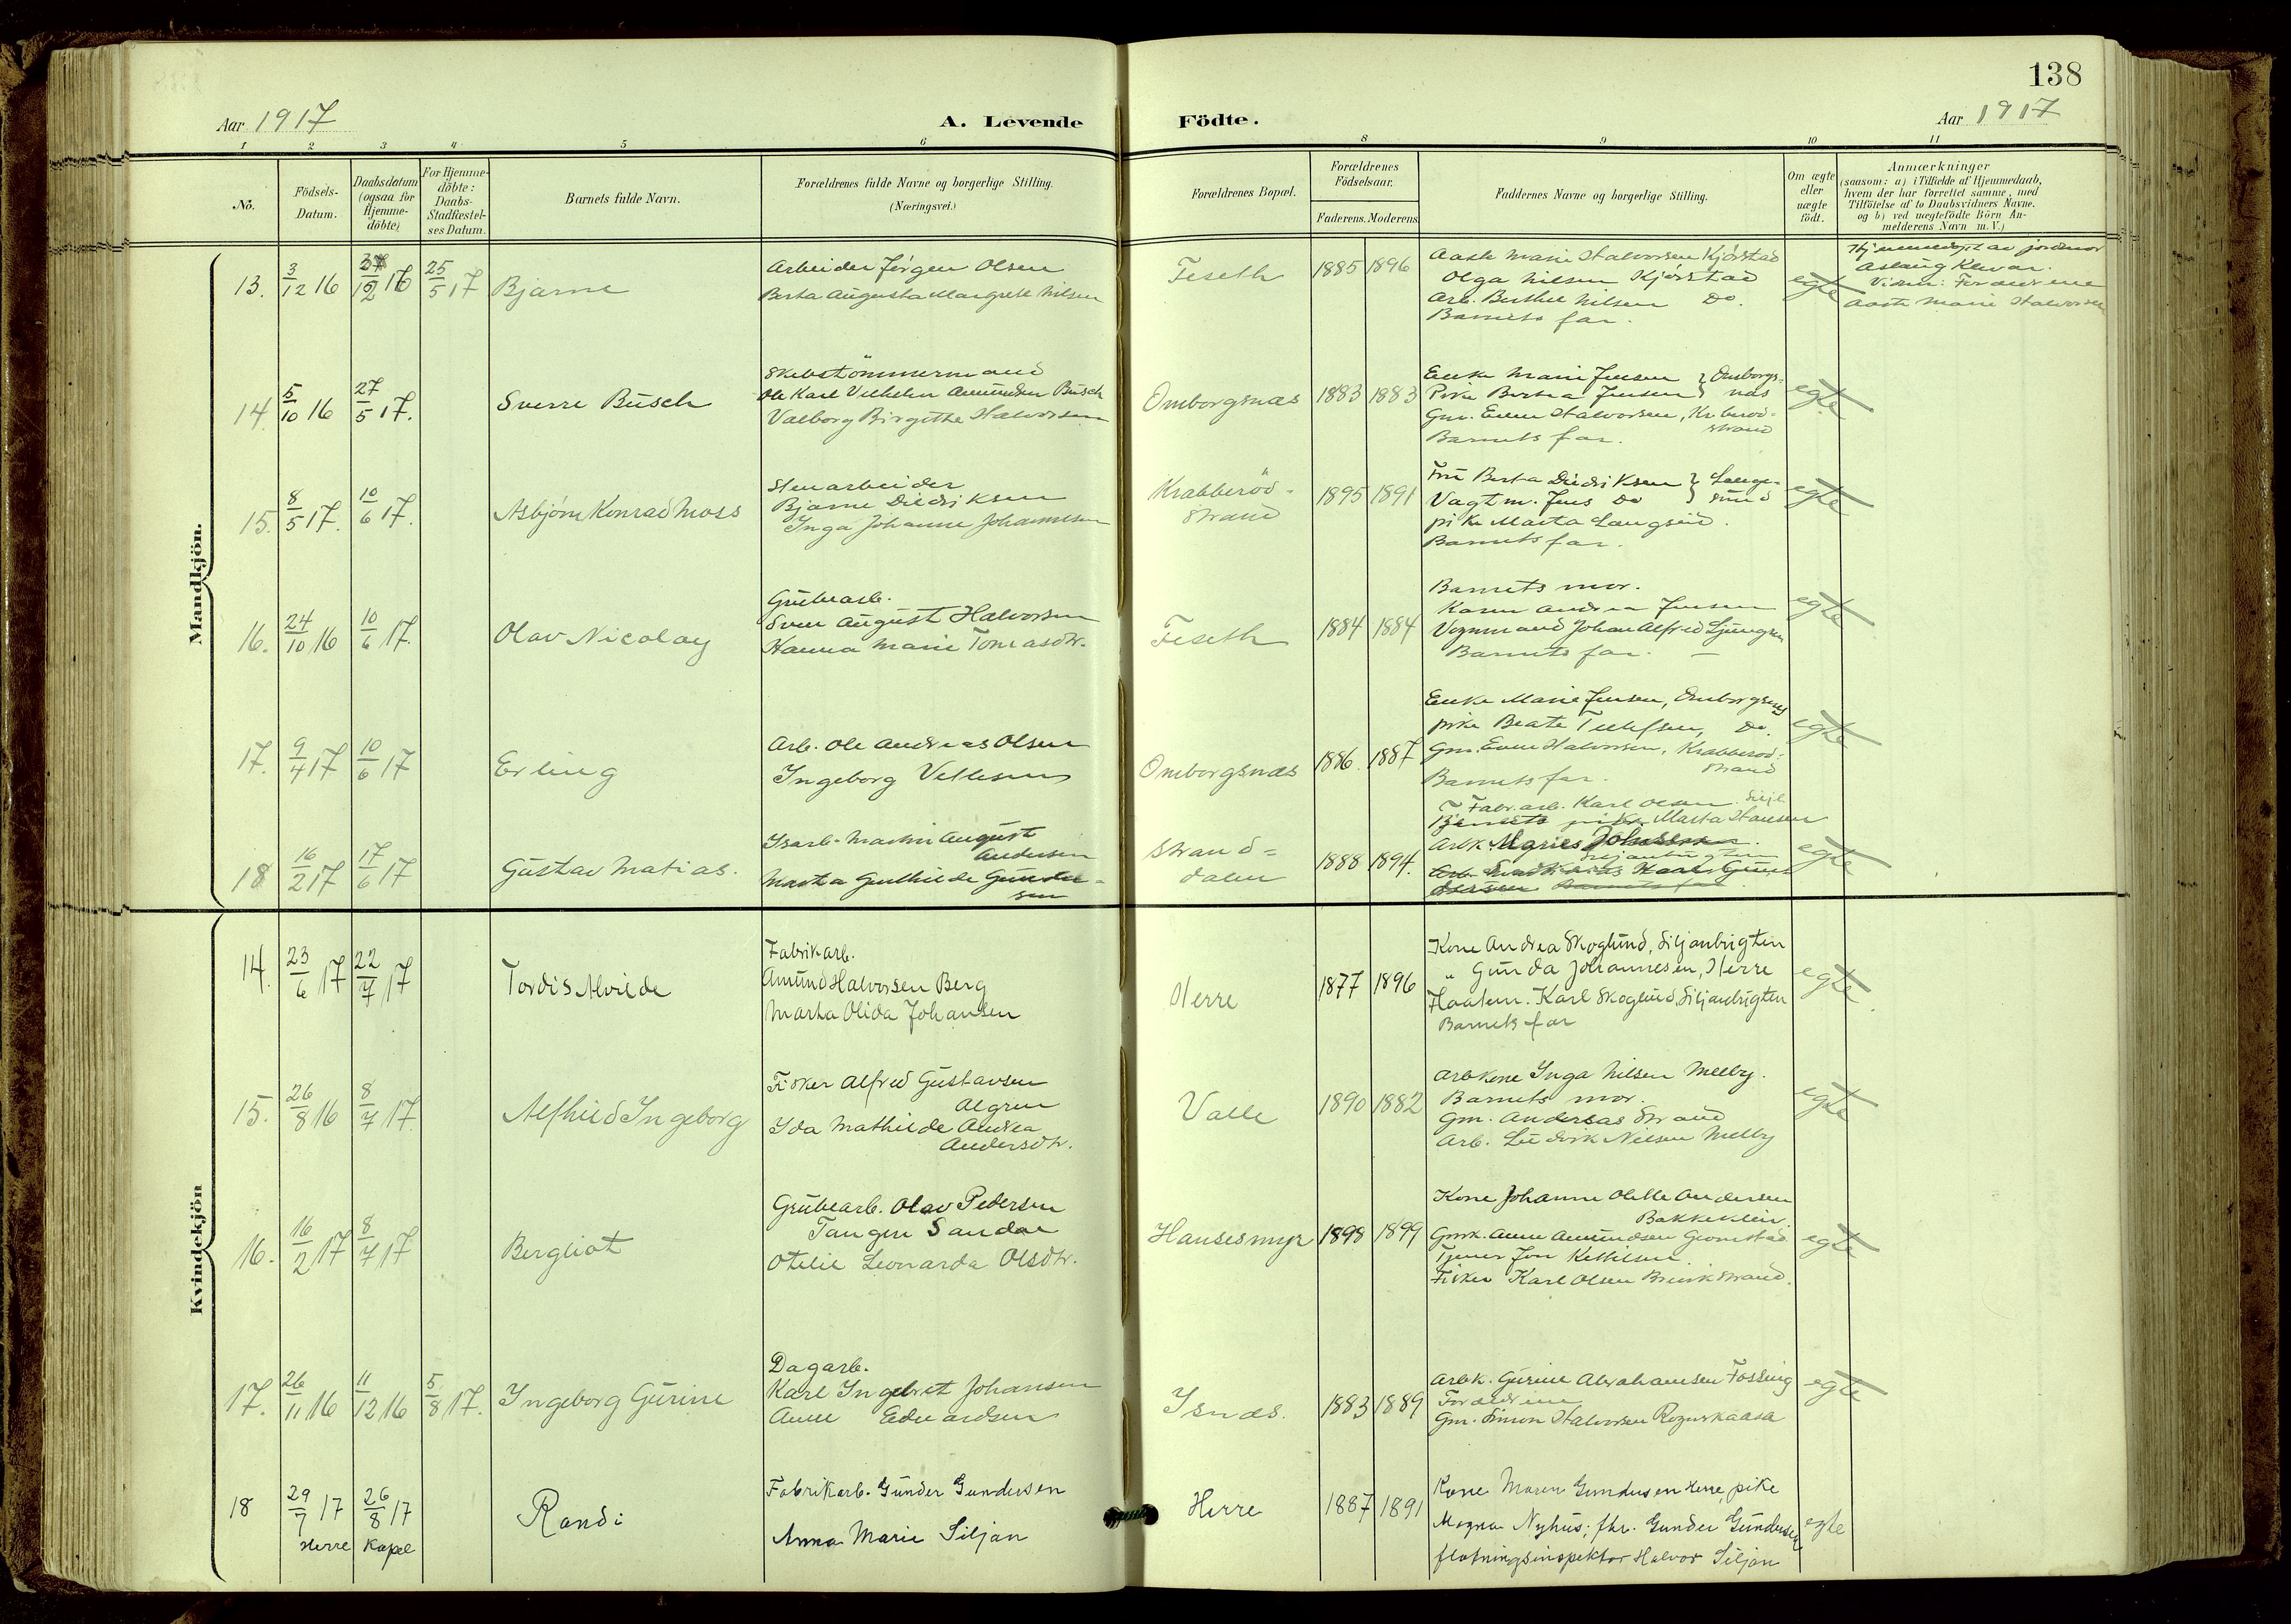 138
Aar 1917
A. Levende
Födte.
Aar 1917
1 2 3 4 5 6 8 9 10 11
No.
Födsels-
Datum.
Daabsdatum
(ogsaa for
Hjemme-
döbte)
For Hjemme-
döbte:
Daabs-
Stadfæstel-
ses Datum.
Barnets fulde Navn.
Forældrenes fulde Navne og borgerlige Stilling.
(Næringsvei.)
Forældrenes Bopæl.
Forældrenes
Födselsaar.
Faderens. Moderens.
Faddernes Navne og borgerlige Stilling.
Om ægte
eller
uægte
födt.
Anmærkninger
(saasom: a) i Tilfælde af Hjemmedaab,
hvem der har forrettet samme, med
Tilföielse af to Daabsvidners Navne.
og b) ved uægtefödte Börn An-
melderens Navn m. V.)
Mandkjön.
13. 3/12 16
25/5 17
Bjarne
Arbeider Jörgen Olsen
Berta Augusta Margrete Nilsen
Feseth
1885 1896
Aaste Marie Halvorsen Kjörstad
Olga Nilsen Kjörstad
Arb. Berthel Nilsen Do.
Barnets far.
egte
Hjemmedöpt av jordmor
Aslaug Klevar.
Vidner: Forældrene
Aaste Marie Halvorsen
14. 5/10 16 27/5 17.
Sverre Busch
Skibstömmermand
Ole Karl Vilhelm Amundsen Busch
Valborg Birgitte Halvorsen
Omborgsnæs
1883 1883
Enke Marie Jensen } Omborgs-
Pike Berta Jensen } næs
Gm. Even Halvorsen, Kr.beröd-
strand
Barnets far.
egte
15. 8/5 17. 10/6 17.
Asbjörn Konrad Moss
Stenarbeider
Bjarne Diedriksen
Inga Johanne Johannesen
Krabberöd-
strand
1895 1891
Fru Berta Diedriksen } Lange-
Vagtm. Jens Do } sund
pike Marta Langseid.
Barnets far.
egte
16. 24/10 16 10/6 17.
Olav Nicolay
Grubearb.
Sven August Halvorsen
Hanna Marie Tomasdtr.
Feseth
1884 1884
Barnets mor.
Karen Andrea Jensen
Vognmand Johan Alfred Ljungren
Barnets far. —
egte
17. 9/4 17 10/6 17
Erling
Arb. Ole Andreas Olsen
Ingeborg Vetlesen
Omborgsnæs
1886. 1887
Enke Marie Jensen, Omborgsnæs
pike Beate Tellefsen, Do.
Gm. Even Halvorsen, Krabberöd-
strand
Barnets far.
egte
18 16/2 17 17/6 17
Gustav Matias.
Isarb. Martin August
Andersen
Marta Gunhilde Gunder-
sen
Strand-
dalen
1888 1894.
Fabr.arb. Karl Olsen
pike Marta Hansen
Arbk. Agnes
egte
Kvindekjön
14. 23/6 17 22/7 17
Tordis Alvilde
Fabrikarb.
Amund Halvorsen Berg
Marta Olida Johansen
Herre
1877 1896
Kone Andrea Skoglund, Siljanbrigten
" Gunda Johannesen, Herre
Flaatem. Karl Skoglund, Siljanbrigten
Barnets far
egte
15. 26/8 16 8/7 17.
Alfhild Ingeborg
Fisker Alfred Gustavsen
Algren
Ida Mathilde Andrea
Andersdtr.
Valle
1890 1882
Arbkone Inga Nilsen Melby.
Barnets mor.
Gm. Andereas Strand
Arb. Ludvik Nilsen Melby
egte
16. 16/2 17 8/7 17
Bergliot
Grubearb. Olav Pedersen
Tangen Sandøe
Otelie Leonarda Olsdtr.
Hansesmyr
1898 1899
Kone Johanne Olette Andersen
Bakkeklein.
Gmk. Anne Amundsen Gromstad
Tjener Jon Kettilsen.
Fisker Karl Olsen Brevikstrand.
egte
17. 26/11 16 11/12 16 5/8 17.
Ingeborg Gurine
Dagarb.
Karl Ingebret Johansen
Anne Edvardsen
Isnæs.
1883 1889
Arbk. Gurine Abrahamsen Fossing
Forældrene
Gm. Simon Halvorsen Rognskaasa
egte
18 29/7 17 26/8 17
Herre Kapel
Randi
Fabrikarb. Gunder Gundersen
Anna Marie Siljan
Herre
1887 1891
Kone Maren Gundersen Herre, pike
Magna Nyhus; fhr. Gunder Gundersen
flötningsinspektör Halvor Siljan
egte